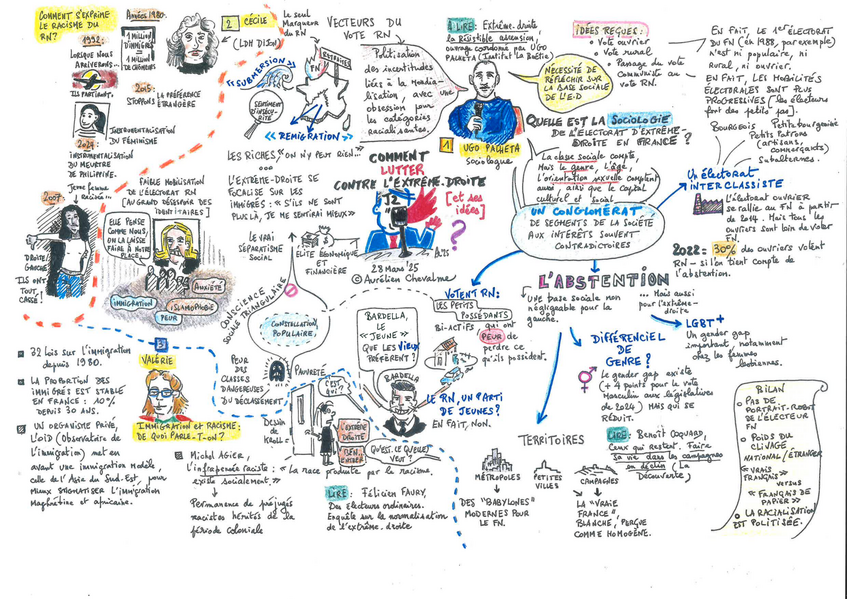 COMMENT S'EXPRIME
LE RACISME DU
RN?
Années 1980.
1 MILLION
D'IMMIGRÉS
=
1 MILLION
DE CHÔMEURS
1992:
LORSQUE NOUS
ARRIVERONS...
ILS PARTIRONT.
2015:
STOPPONS LA PRÉFÉRENCE
ÉTRANGÈRE
INSTRUMENTALISATION
DU FÉMINISME
2024:
INSTRUMENTALISATION
DU MEURTRE
DE PHILIPPINE.
2007
DROITE/
GAUCHE
ILS ONT
TOUT
CASSÉ!
FAIBLE MOBILISATION
DE L'ÉLECTORAT RN
[AU GRAND DÉSESPOIR DES
IDENTITAIRES]
ELLE PENSE
COMME NOUS,
ON LA LAISSE
FAIRE À NOTRE
PLACE.
ANXIÉTÉ
IMMIGRATION
ISLAMOPHOBIE
PEUR
2 CÉCILE
(LDH DIJON)
Le seul
Marqueur
du RN
VECTEURS DU
VOTE RN
FN
«SUBMERSION»
SENTIMENT
D'INSÉCU-
RITÉ
«REMIGRATION»
Politisation
des incertitudes
liées à la mondia-
lisation, avec une
obsession pour
les catégories
racialisantes.
LES RICHES, «ON N'Y PEUT RIEN...»
L'EXTRÊME-DROITE SE
FOCALISE SUR LES
IMMIGRÉS: «S'ILS NE SONT
PLUS LÀ, JE ME SENTIRAI MIEUX»
LE VRAI
SÉPARATISME
SOCIAL
ÉLITE ÉCONOMIQUE
ET
FINANCIÈRE
CONSCIENCE
SOCIALE TRIANGULAIRE
CONSTELLATION
POPULAIRE
PEUR
DES
CLASSES
DANGEREUSES
DU DÉCLASSEMENT
PAUVRETÉ
COMMENT
LUTTER
CONTRE L'EXTRÊME-DROITE
[et ses
idées]
?
28 mars '25
© Aurélien Chevalme
À LIRE: Extrême-droite
la résistible ascension,
ouvrage coordonné par UGO
PALHETA (Institut la Boétie)
1 UGO PALHETA
sociologue
NÉCESSITÉ DE
RÉFLÉCHIR SUR
LA BASE SOCIALE
DE L'E-D
IDÉES REÇUES:
• Vote ouvrier
• Vote rural
• Passage du vote
Communiste au
vote RN.
EN FAIT, LE 1er ÉLECTORAT
DU FN (en 1988, par exemple)
n'est ni populaire, ni
Rural, ni ouvrier.
EN FAIT, LES MOBILITÉS
ÉLECTORALES SONT PLUS
PROGRESSIVES [les électeurs
font des petits pas].
QUELLE EST LA SOCIOLOGIE
DE L'ÉLECTORAT D'EXTRÊME-
DROITE EN FRANCE?
La classe sociale compte,
Mais le genre, l'âge,
l'orientation sexuelle comptent
aussi, ainsi que le capital
culturel et social
UN CONGLOMÉRAT
DE SEGMENTS DE LA SOCIÉTÉ
AUX INTÉRÊTS SOUVENT
CONTRADICTOIRES
Un électorat
INTERCLASSISTE
BOURGEOIS
Petite bourgeoisie
Petits Patrons
(artisans,
commerçants)
Subalternes.
L'électorat ouvrier
se rallie au FN à partir
de 2014. Mais tous les
ouvriers sont loin de voter
FN.
2022: 30% des ouvriers votent
RN - si l'on tient compte de
l'abstention.
L'ABSTENTION
UNE base sociale non
négligeable pour la
gauche.
... Mais aussi
pour l'extrême-
droite
LGBT+
Un gender gap
important, notamment
chez les femmes
lesbiennes.
DIFFÉRENCIEL
DE
GENRE?
Le gender gap existe
(+ 4 points pour le vote
Masculin aux législatives
de 2024) MAIS QUI SE
RÉDUIT.
VOTENT RN:
LES PETITS
POSSÉDANTS
BI-ACTIFS qui ont
PEUR de
perdre ce
qu'ils possèdent.
BARDELLA,
LE «JEUNE»
QUE LES VIEUX
PRÉFÈRENT!
BARDELLA
LE RN, UN PARTI
DE JEUNES?
EN FAIT, NON.
TERRITOIRES
MÉTROPOLES
PETITES
VILLES
CAMPAGNES
DES "BABYLONES"
MODERNES POUR
LE FN.
LA "VRAIE
FRANCE"
BLANCHE, PERÇUE
COMME HOMOGÈNE.
LIRE: Benoît COQUARD,
Ceux qui restent. Faire
sa vie dans les campagnes
en déclin (La
Découverte)
BILAN
• PAS DE
PORTRAIT-ROBOT
DE L'ÉLECTEUR
FN
• POIDS DU
CLIVAGE
NATIONAL/ÉTRANGER
«VRAIS
FRANÇAIS»
VERSUS
«FRANÇAIS DE
PAPIER»
• LA RACIALISATION
EST POLITISÉE.
32 lois sur l'immigration
depuis 1980.
LA PROPORTION DES
IMMIGRÉS EST STABLE
EN FRANCE: 10%
DEPUIS 30 ANS.
UN ORGANISME PRIVÉ,
L'OID (Observatoire de
l'immigration) met en
avant une immigration modèle,
celle de l'Asie du Sud-Est, pour
mieux stigmatiser l'immigration
Maghrébine et africaine.
3
VALÉRIE
IMMIGRATION ET RACISME:
DE QUOI PARLE-T-ON?
Michel AGIER,
l'infrapensée raciste: «La race produite par le racisme,
existe socialement»
Permanence de préjugés
racistes hérités de la
période coloniale
DESSIN
DE
KROLL
C'EST
QUI?
L'EXTRÊME
DROITE
QU'EST-CE QU'ELLE
VEUT?
LIRE: Félicien FAURY,
Des électeurs ordinaires.
Enquête sur la normalisation
de l'extrême-droite